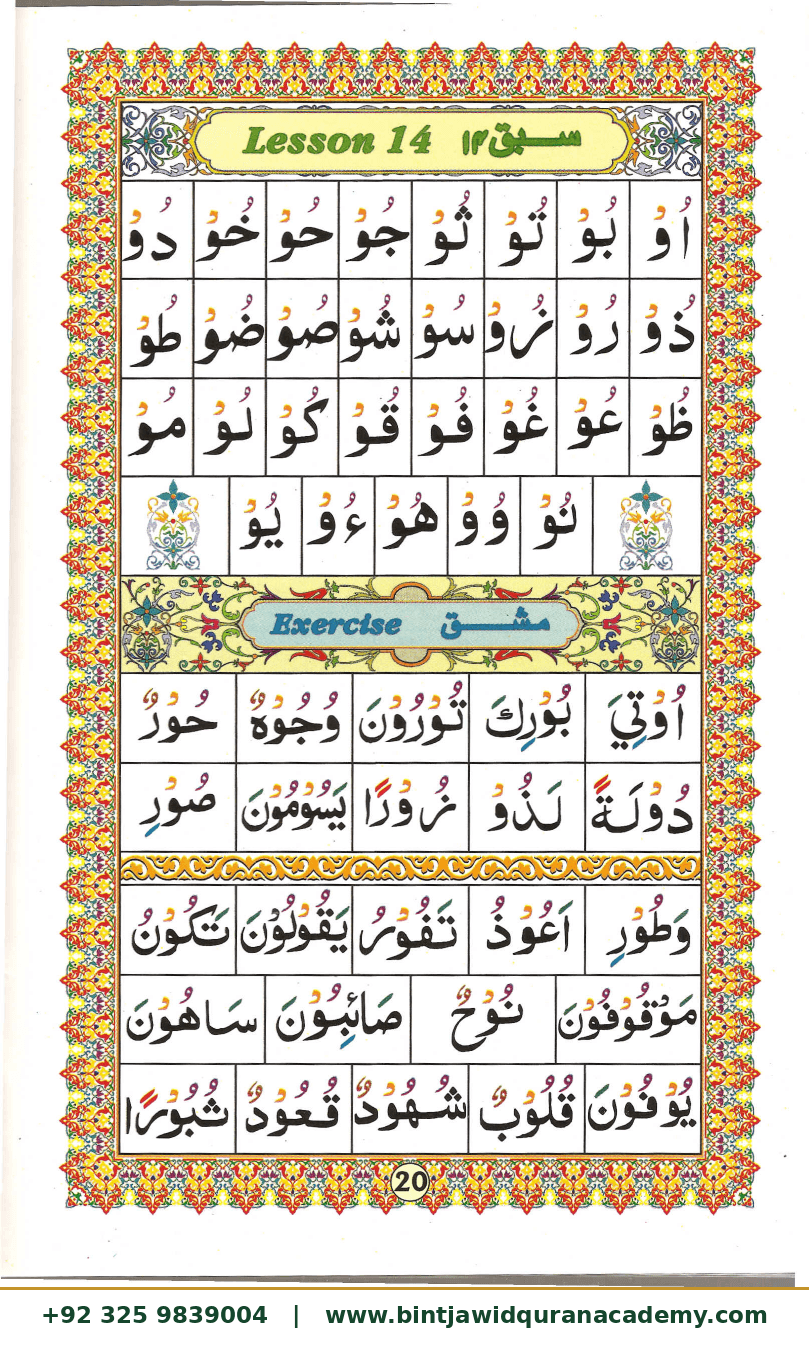 Lesson 14 سبق ۱۴
اُوْ بُوْ تُوْ ثُوْ جُوْ حُوْ خُوْ دُوْ
ذُوْ رُوْ زُوْ سُوْ شُوْ صُوْ ضُوْ طُوْ
ظُوْ عُوْ غُوْ فُوْ قُوْ كُوْ لُوْ مُوْ
نُوْ وُوْ هُوْ ءُوْ يُوْ
Exercise مشق
اُوْتِيَ بُوْرِكَ تُوْرُوْنَ وُجُوْهٌ حُوْرٌ
دُوْلَةً لَذُوْ زُوْرًا يَسُوْمُوْنَ صُوْرِ
وَطُوْرِ اَعُوْذُ تَفُوْرُ يَقُوْلُوْنَ تَكُوْنُ
مَوْقُوْفُوْنَ نُوْحٌ صَائِبُوْنَ سَاهُوْنَ
يُوْفُوْنَ قُلُوْبٌ شُهُوْدٌ قُعُوْدٌ ثُبُوْرًا
20
+92 325 9839004 | www.bintjawidquranacademy.com